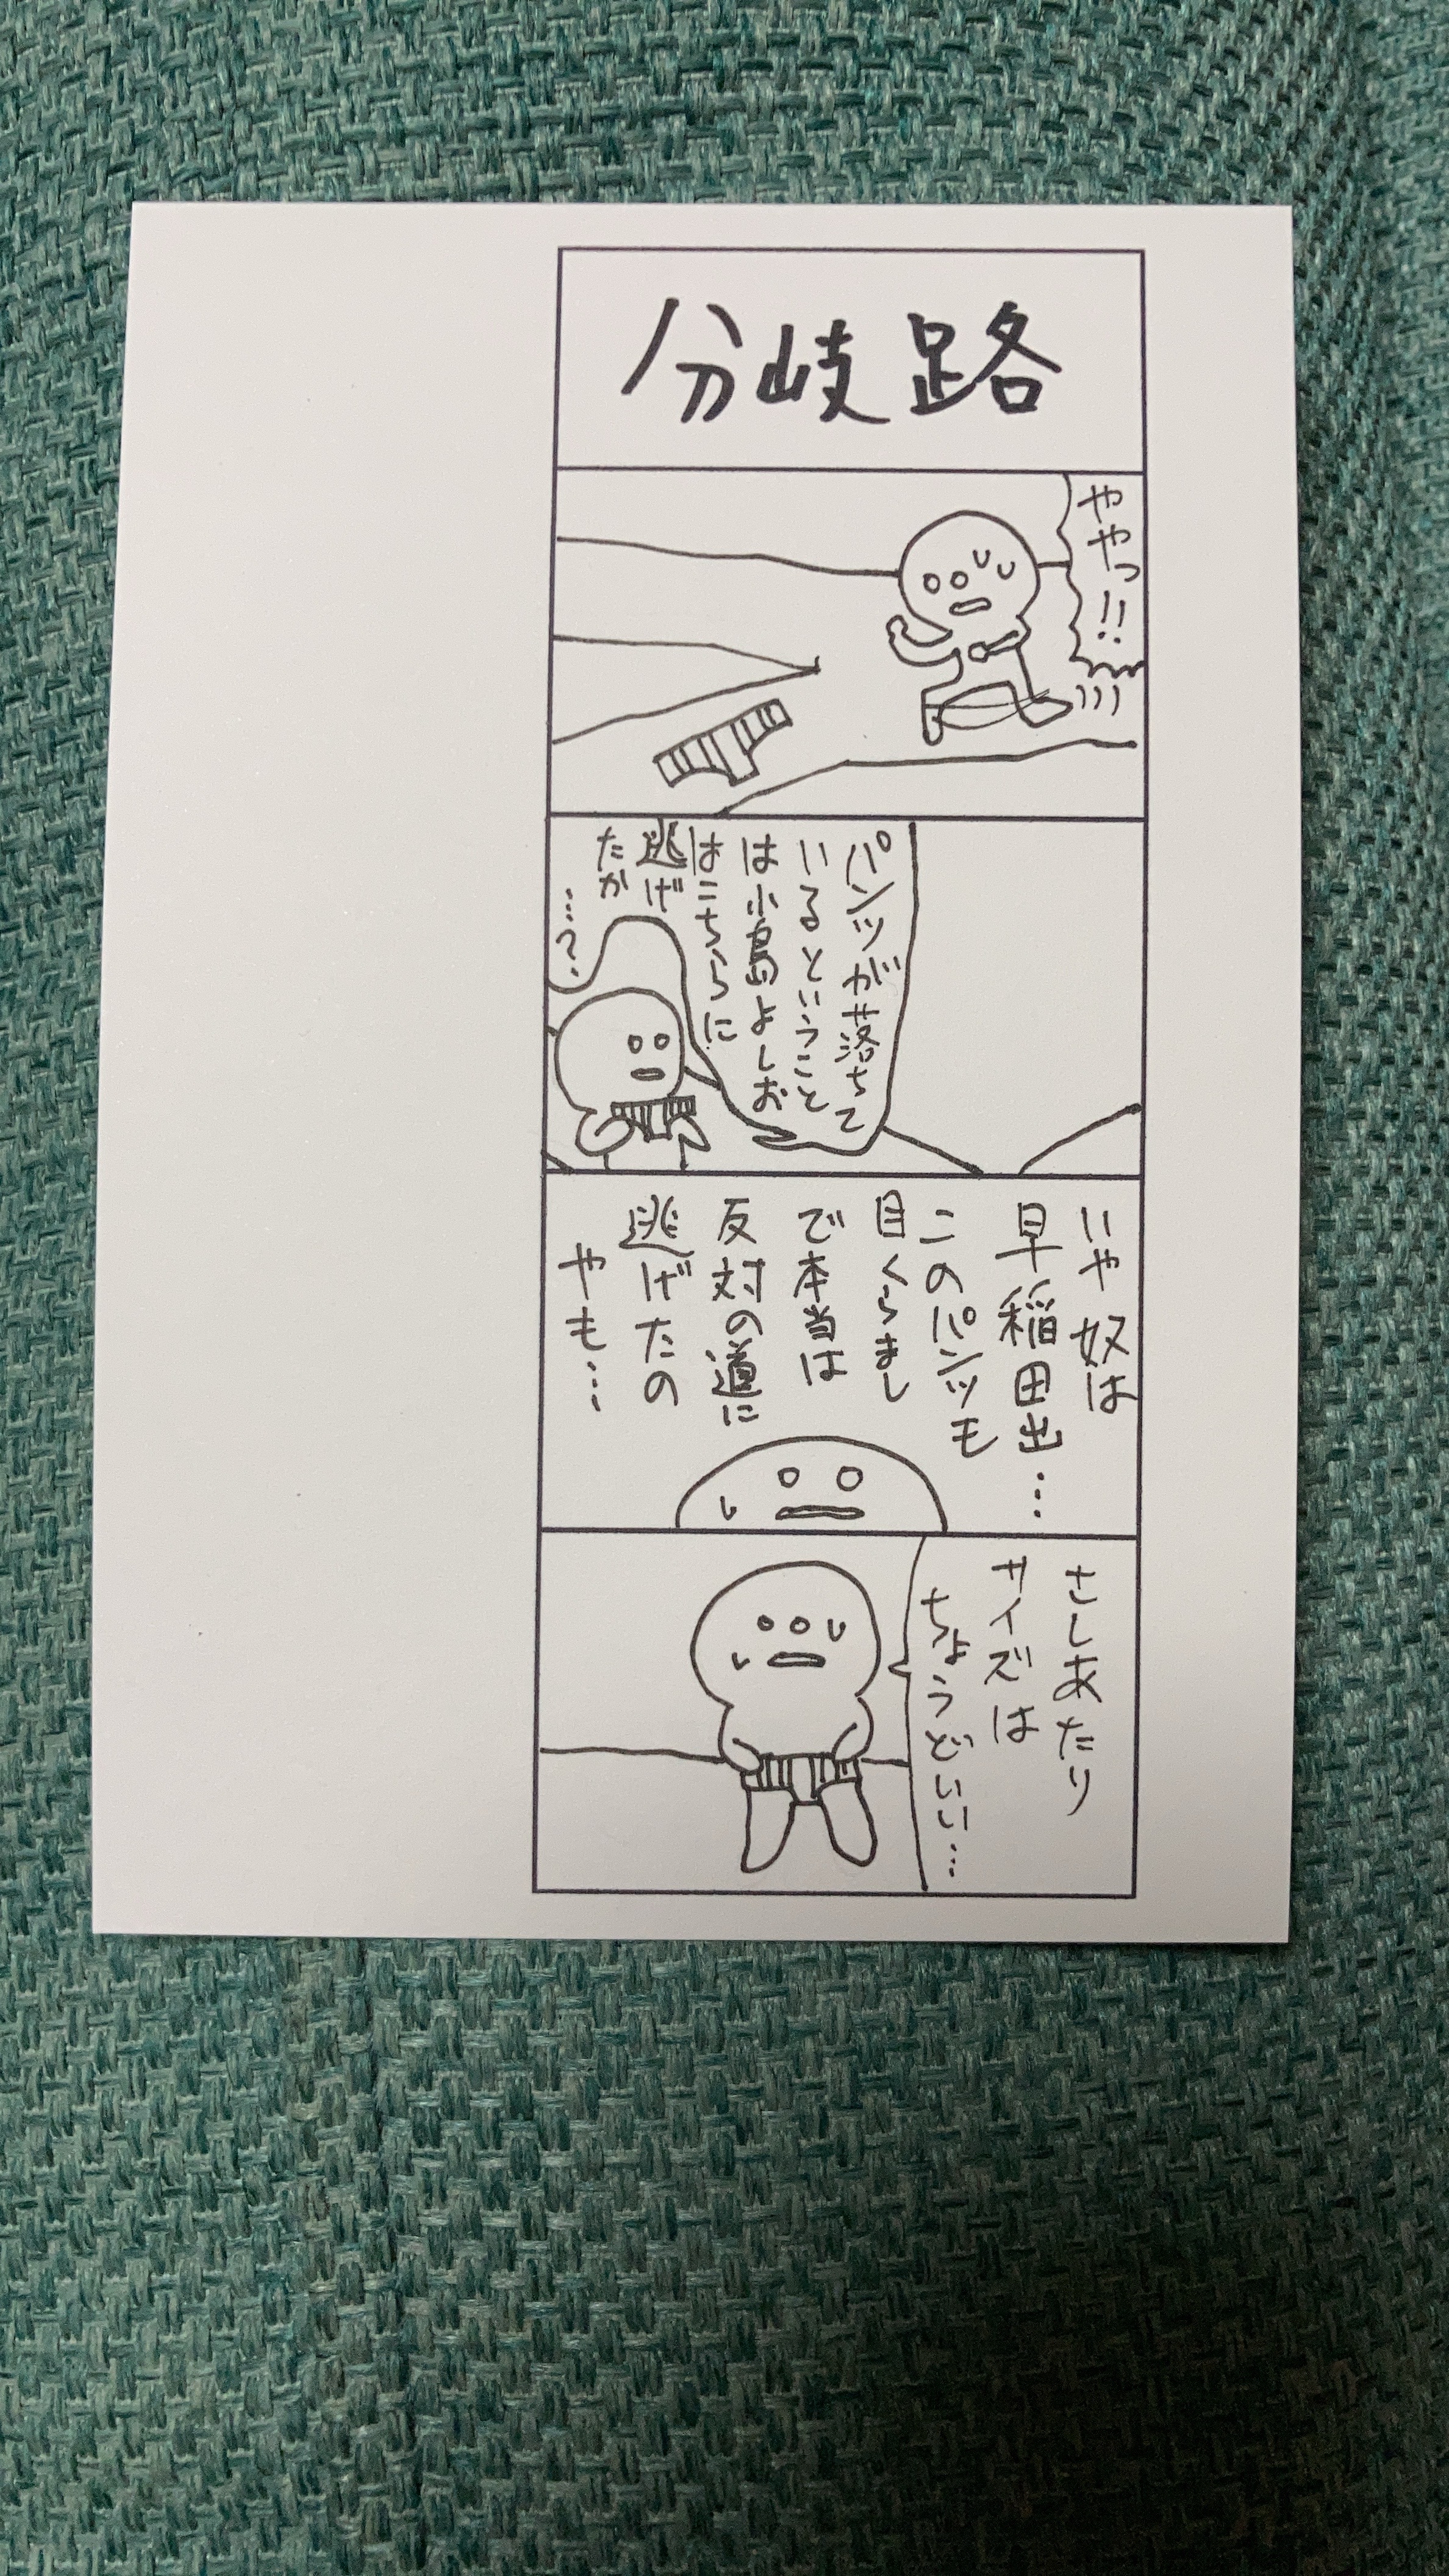 分岐路
ややっ!!
パンツが落ちて
いるということ
は小島よしお
はこちらに
逃げ
たか
…?
いや奴は
早稲田出…
このパンツも
目くらまし
で本当は
反対の道に
逃げたの
やも…
さしあたり
サイズは
ちょうどいい…